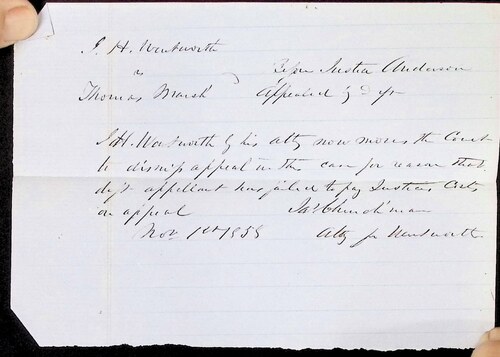 J. H. Wentworth
vs
Before Justice Anderson
Thomas Marsh
Appealed by Deft
J. H. Wentworth by his atty now moves the Court
to dismiss appeal in this case for reason that
deft appellant has failed to pay Justices Costs
on appeal
Jas Churchman
Nov 1st 1858
Atty for Wentworth